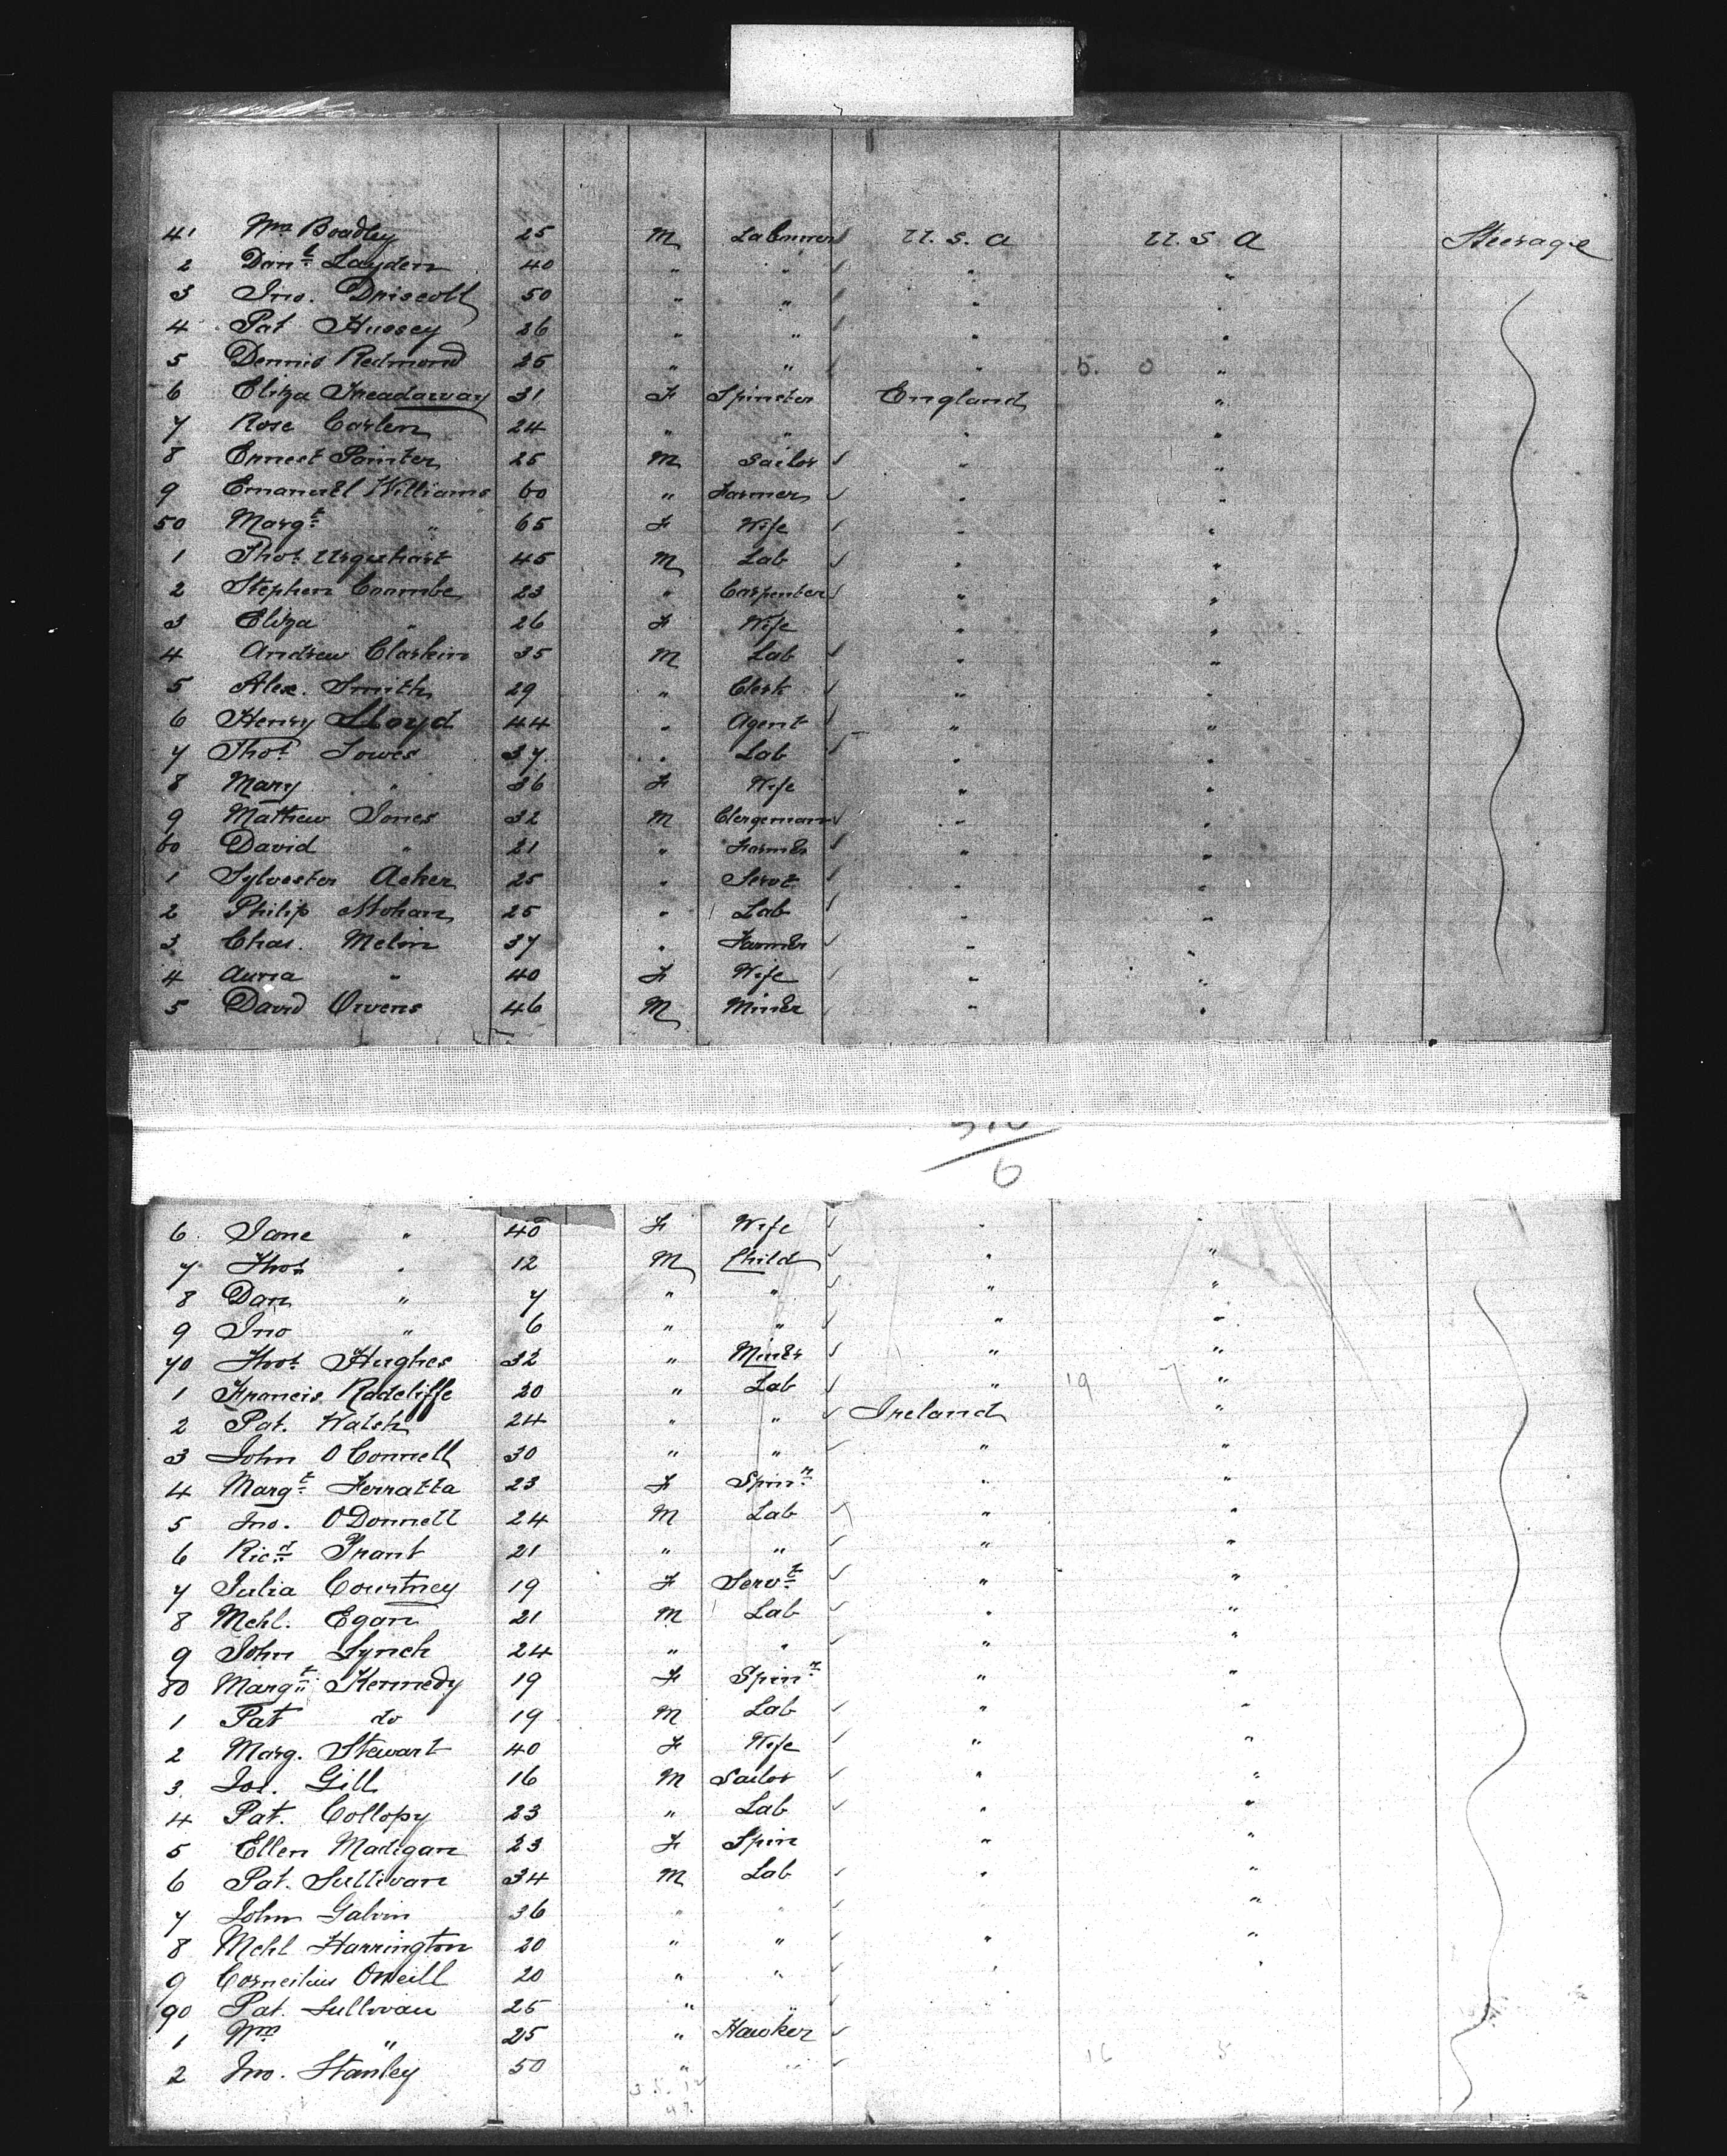 41 Wm Boadley 25 M Labourer U. S. A U. S A Steerage
2 Danl Layden 40 " " " "
3 Jno. Driscoll 50 " " " "
4 Pat Hussey 26 " " " "
5 Dennis Redmond 25 " " " 5. 0 "
6 Eliza Treadaway 31 F Spinster England "
7 Rose Carlen 24 " " " "
8 Ernest Pointer 25 M Sailor " "
9 Emanuel Williams 60 " Farmer " "
50 Margt " 65 F Wife " "
1 Thos Urquhart 45 M Lab " "
2 Stephen Coombe 23 " Carpenter " "
3 Eliza " 26 F Wife " "
4 Andrew Clarkin 35 M Lab " "
5 Alex. Smith 29 " Clerk " "
6 Henry Lloyd 44 " Agent " "
7 Thos Lowes 37 " Lab " "
8 Mary " 36 F Wife " "
9 Mathew Jones 32 M Clergeman " "
60 David " 21 " Farmer " "
1 Sylvester Acker 25 " Servt " "
2 Philip Mohan 25 " Lab " "
3 Chas. Melin 37 " Farmer " "
4 Auna " 40 F Wife " "
5 David Owens 46 M Miner " "
6
6 Jane " 40 F Wife " "
7 Thos " 12 M Child " "
8 Dan " 7 " " " "
9 Jno " 6 " " " "
70 Thos Hughes 32 " Miner " "
1 Francis Radcliffe 20 " Lab " 19 7 "
2 Pat. Walsh 24 " " Ireland "
3 John O Connell 30 " " " "
4 Margt Ferratta 23 F Spinr " "
5 Jno. O Donnell 24 M Lab " "
6 Ricd Grant 21 " " " "
7 Julia Courtney 19 F Servt " "
8 Mchl. Egan 21 M Lab " "
9 John Lynch 24 " " " "
80 Margt Kennedy 19 F Spinr " "
1 Pat do 19 M Lab " "
2 Marg. Stewart 40 F Wife " "
3 Jos. Gill 16 M Sailor " "
4 Pat. Collopy 23 " Lab " "
5 Ellen Madigan 23 F Spin " "
6 Pat. Sullivan 34 M Lab " "
7 John Galvin 36 " " "
8 Mchl Harrington 20 " " " "
9 Corneilius ONeill 20 " " " "
90 Pat. Sullivan 25 " "
1 Wm " 25 " Hawker
2 Jno. Stanley 50 " " 16 5